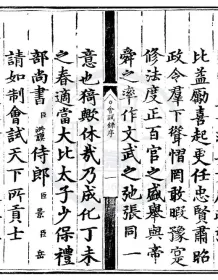 比益勵喜起更任忠賢肅昭
政令羣下讋慴罔敢暇豫
修法度正百官之盛舉與帝
舜之率作文武之弛張同一
會試錄序
意也猗歟休哉乃成化丁未
之春適當大比太子少保禮
部尚書臣洪謨侍郎臣景臣岳
請如制會試天下所貢士